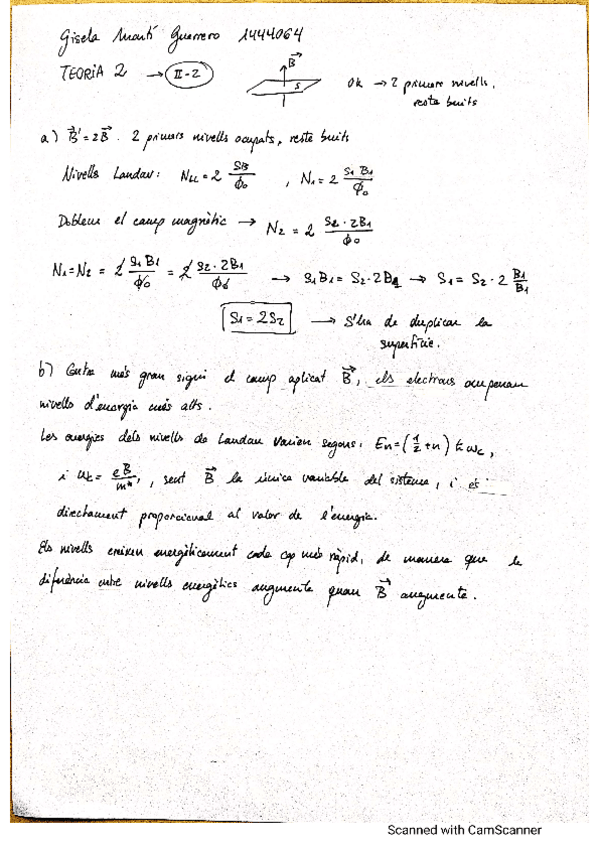 Gisela Martí Guerrero 1444064
TEORIA 2 → II-2
B⃗
S
0K → 2 primers nivells,
resta buits
a) B⃗' = 2B⃗. 2 primers nivells ocupats, resta buits
Nivells Landau: N_LL = 2 SB/ϕ₀ , N₁ = 2 S₁B₁/ϕ₀
Doblem el camp magnètic → N₂ = 2 S₂·2B₁/ϕ₀
N₁=N₂ = 2 S₁B₁/ϕ₀ = 2 S₂·2B₁/ϕ₀ → S₁B₁ = S₂·2B₁ → S₁ = S₂·2 B₁/B₁
S₁ = 2S₂ → S'ha de duplicar la
superfície.
b) Quan més gran sigui el camp aplicat B⃗, els electrons ocuparan
nivells d'energia més alts.
Les energies dels nivells de Landau varien segons: En=(1/2+n) ħω_c,
i ω_c = eB/m*, sent B⃗ la única variable del sistema, i és
directament proporcional al valor de l'energia.
Els nivells creixen energèticament cada cop més ràpid, de manera que la
diferència entre nivells energètics augmenta quan B⃗ augmenta.
Scanned with CamScanner